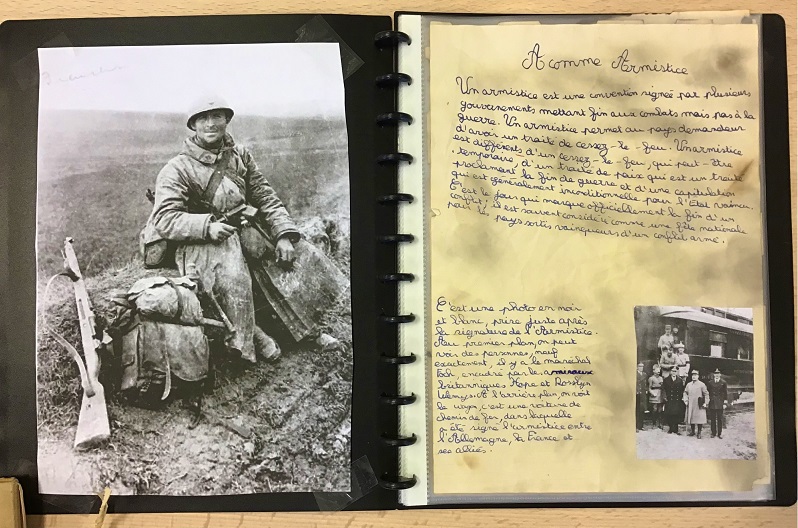 A comme Armistice
Un armistice est une convention signée par plusieurs
gouvernements mettant fin aux combats mais pas à la
guerre. Un armistice permet au pays demandeur
d'avoir un traité de cessez-le-feu. Un armistice
est différents d'un cessez-le-feu, qui peut-être
temporaire, d'un traité de paix qui est un traité
proclament la fin de guerre et d'une capitulation
qui est généralement inconditionnelle pour l'État vaincu.
C'est le jour qui marque officiellement la fin d'un
conflit; il est souvent considéré comme une fête nationale
pour les pays sorties vainqueurs d'un conflit armé.
C'est une photo en noir
et blanc, prise juste après
la signature de l'Armistice.
Au premier plan, on peut
voir des personnes, neuf
exactement, il y a le maréchal
Foch, encadré par les amiraux
britanniques Hope et Rosslyn
Wemyss. A l'arrière plan, on voit
le wagon, c'est une voiture de
chemin de fer, dans laquelle
a été signé l'armistice entre
l'Allemagne, la France et
ses alliés.